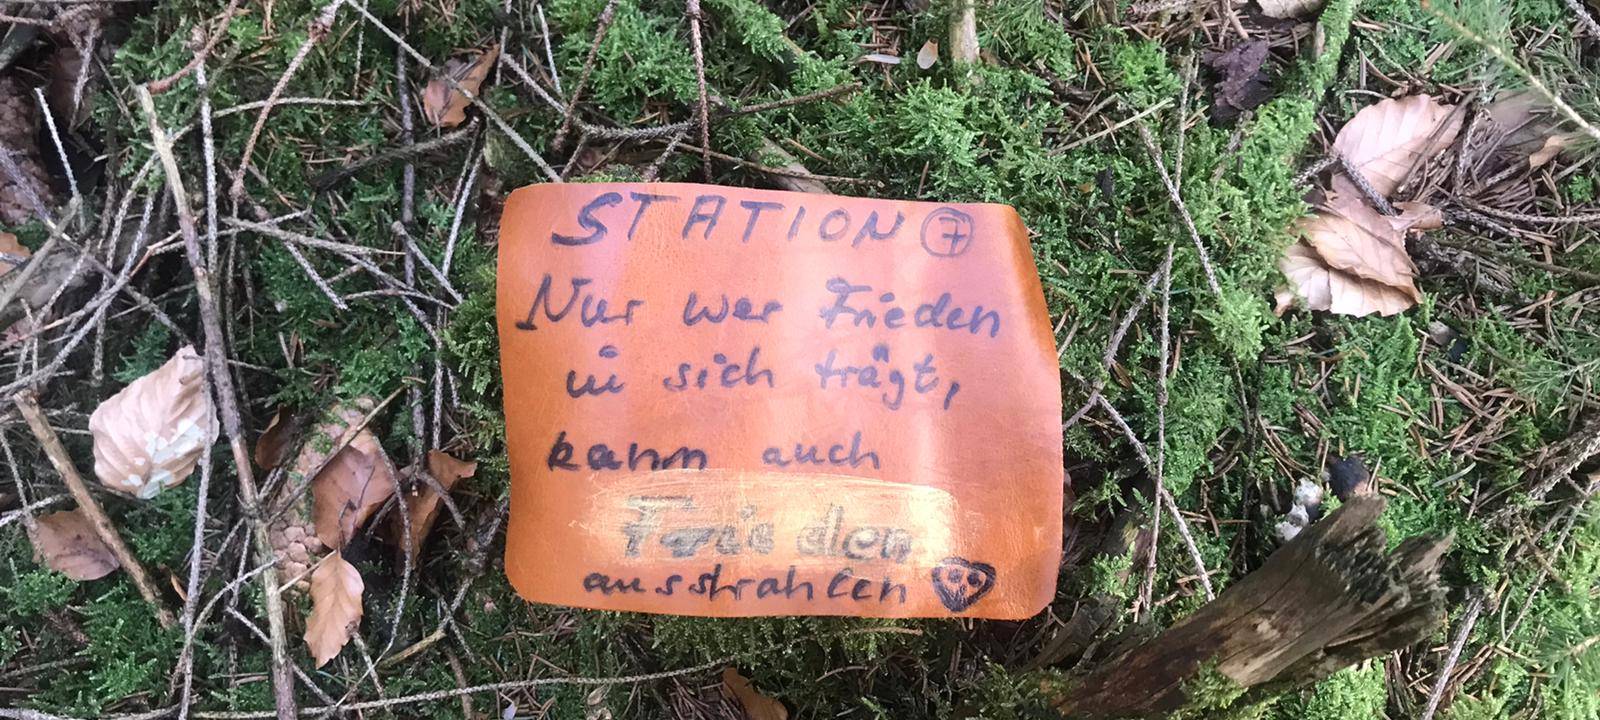 STATION 7
Nur wer Frieden
in sich trägt,
kann auch
Frieden
ausstrahlen